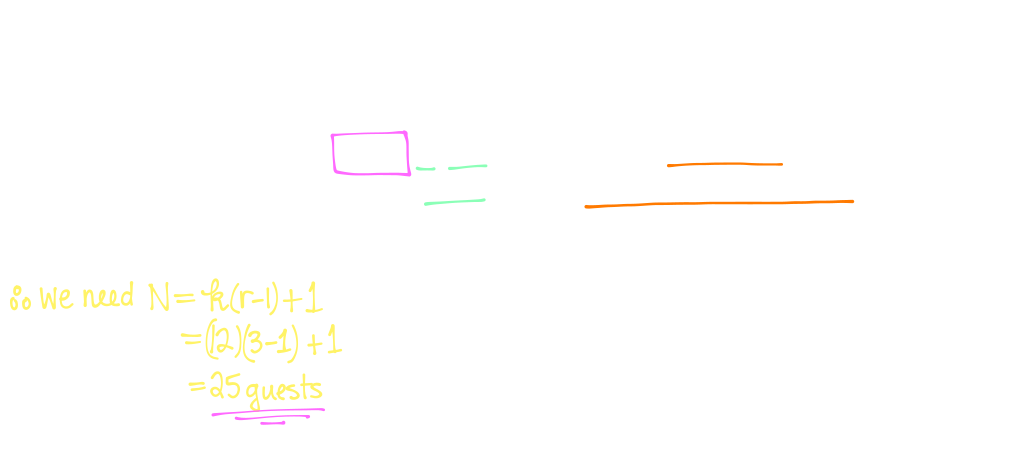 ∴ We need N = k(r-1)+1
= (12)(3-1)+1
= 25 guests